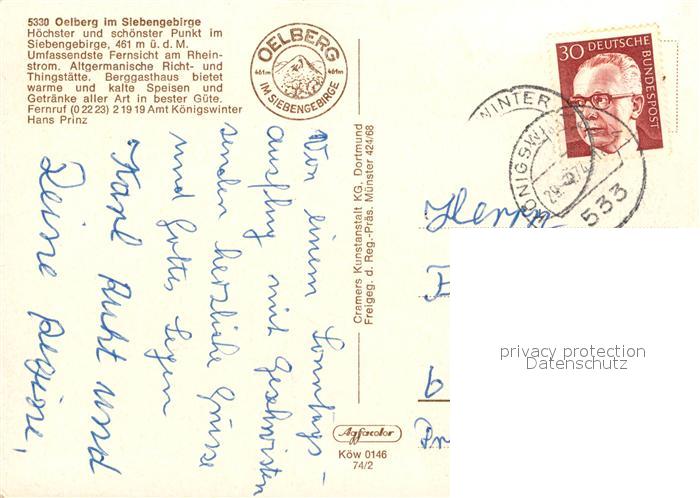 5330 Oelberg im Siebengebirge
Höchster und schönster Punkt im
Siebengebirge, 461 m ü. d. M.
Umfassendste Fernsicht am Rhein-
strom. Altgermanische Richt- und
Thingstätte. Berggasthaus bietet
warme und kalte Speisen und
Getränke aller Art in bester Güte.
Fernruf (0 22 23) 2 19 19 Amt Königswinter
Hans Prinz
OELBERG
461m 461m
IM SIEBENGEBIRGE
30 DEUTSCHE
BUNDESPOST
KÖNIGSWINTER
533
Von einem Sonntags-
ausflug mit Geschwistern
senden herzliche Grüsse
und Gottes Segen
Karl Ruht und
Cramers Kunstanstalt KG. Dortmund
Freigeg. d. Reg.-Präs. Münster 424/68
Herrn
privacy protection
Datenschutz
Agfacolor
Köw 0146
74/2